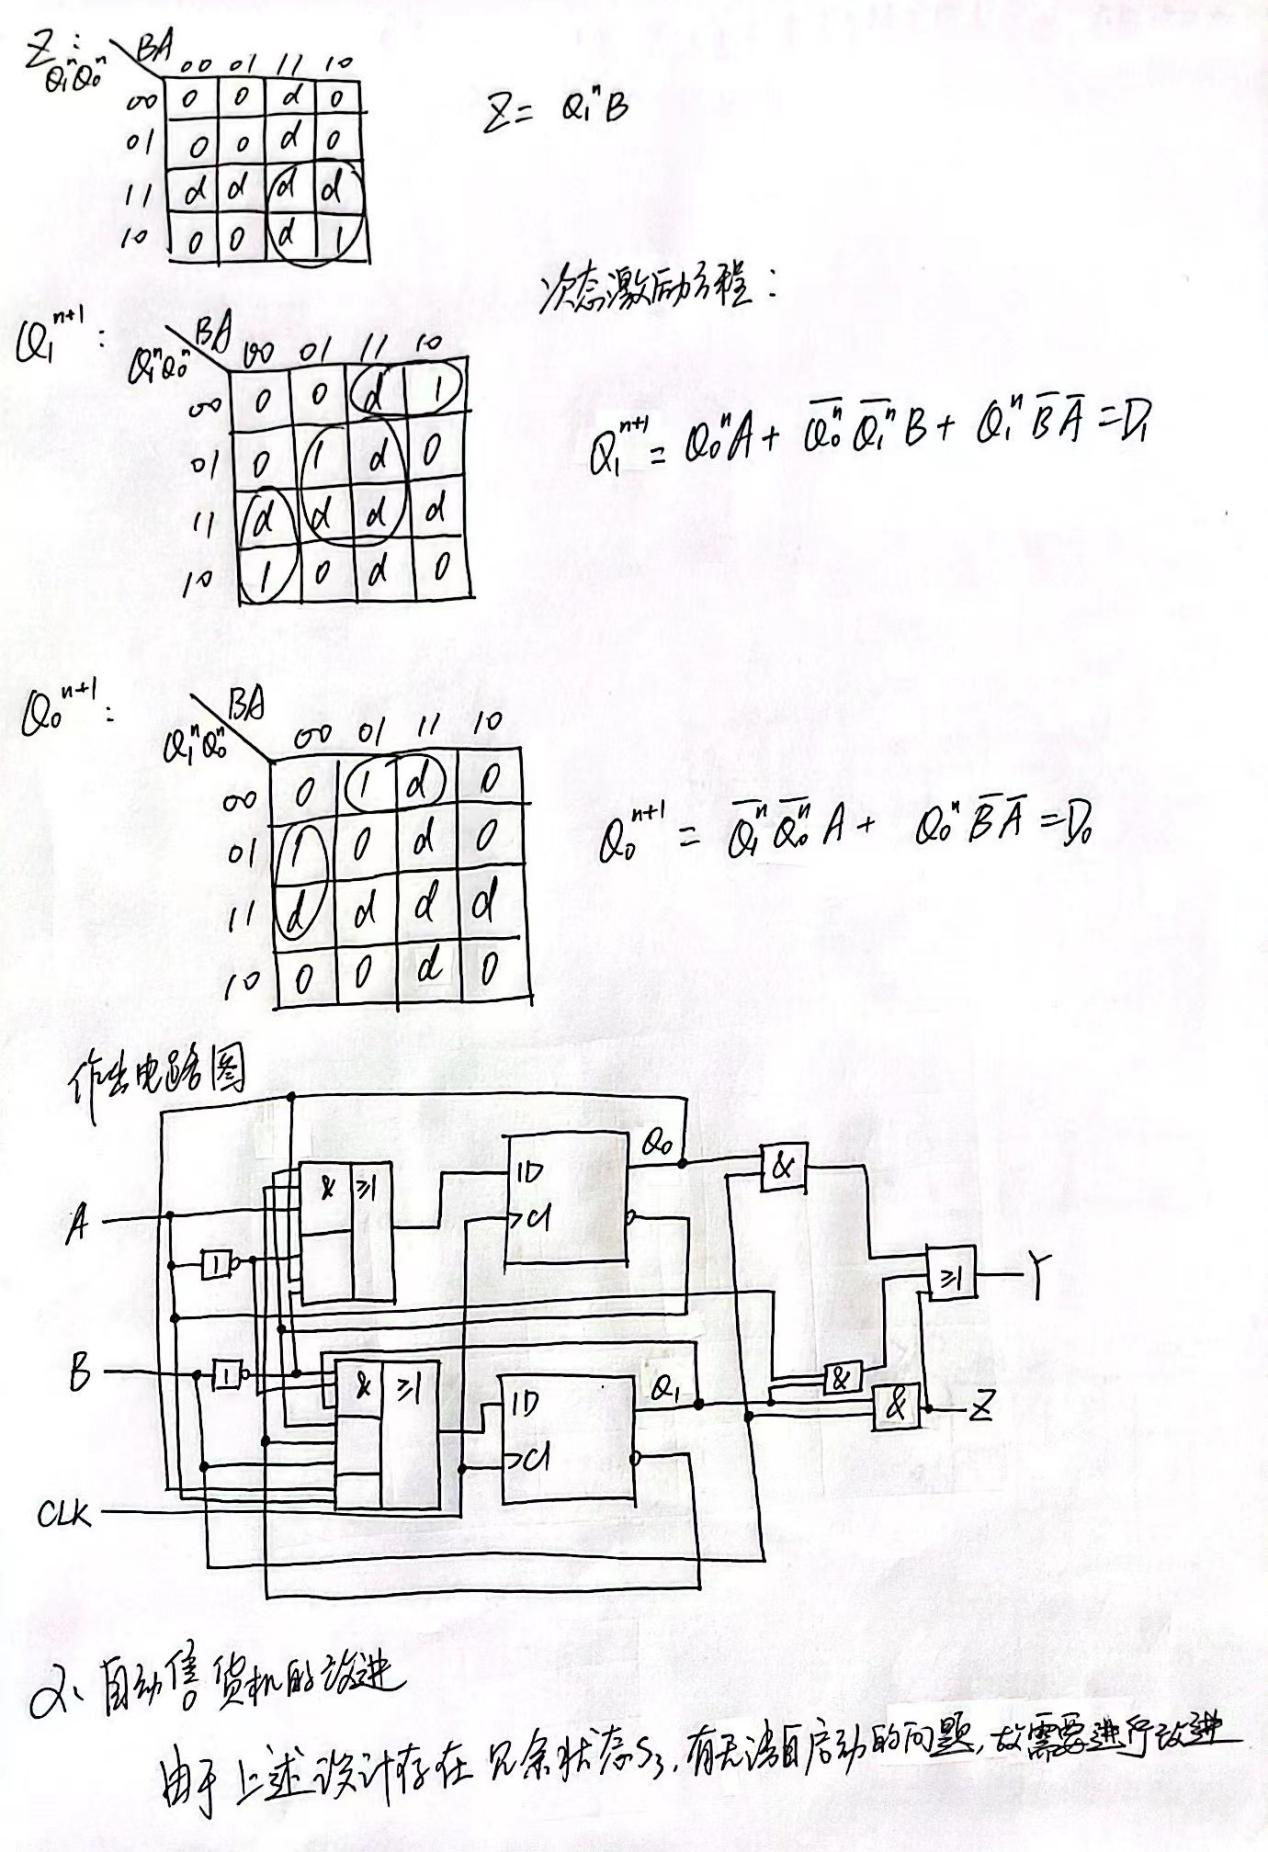 Z: BA
Q₁ⁿQ₀ⁿ 00 01 11 10
00 0 0 d 0
01 0 0 d 0
11 d d d d
10 0 0 d 1
Z = Q₁ⁿB
次态激励方程:
Q₁ⁿ⁺¹: BA
Q₁ⁿQ₀ⁿ 00 01 11 10
00 0 0 d 1
01 0 1 d 0
11 d d d d
10 1 0 d 0
Q₁ⁿ⁺¹ = Q₀ⁿA + Q̅₀ⁿ Q̅₁ⁿ B + Q₁ⁿ B̅ A̅ = D₁
Q₀ⁿ⁺¹: BA
Q₁ⁿQ₀ⁿ 00 01 11 10
00 0 1 d 0
01 1 0 d 0
11 d d d d
10 0 0 d 0
Q₀ⁿ⁺¹ = Q̅₁ⁿ Q̅₀ⁿ A + Q₀ⁿ B̅ A̅ = D₀
作出电路图
A
1
& ≥1
1D
C1
Q₀
&
≥1
Y
B
1
& ≥1
1D
C1
Q₁
&
&
Z
CLK
2、自动售货机的改进
由于上述设计存在冗余状态S₃,有无法自启动的问题,故需要进行改进